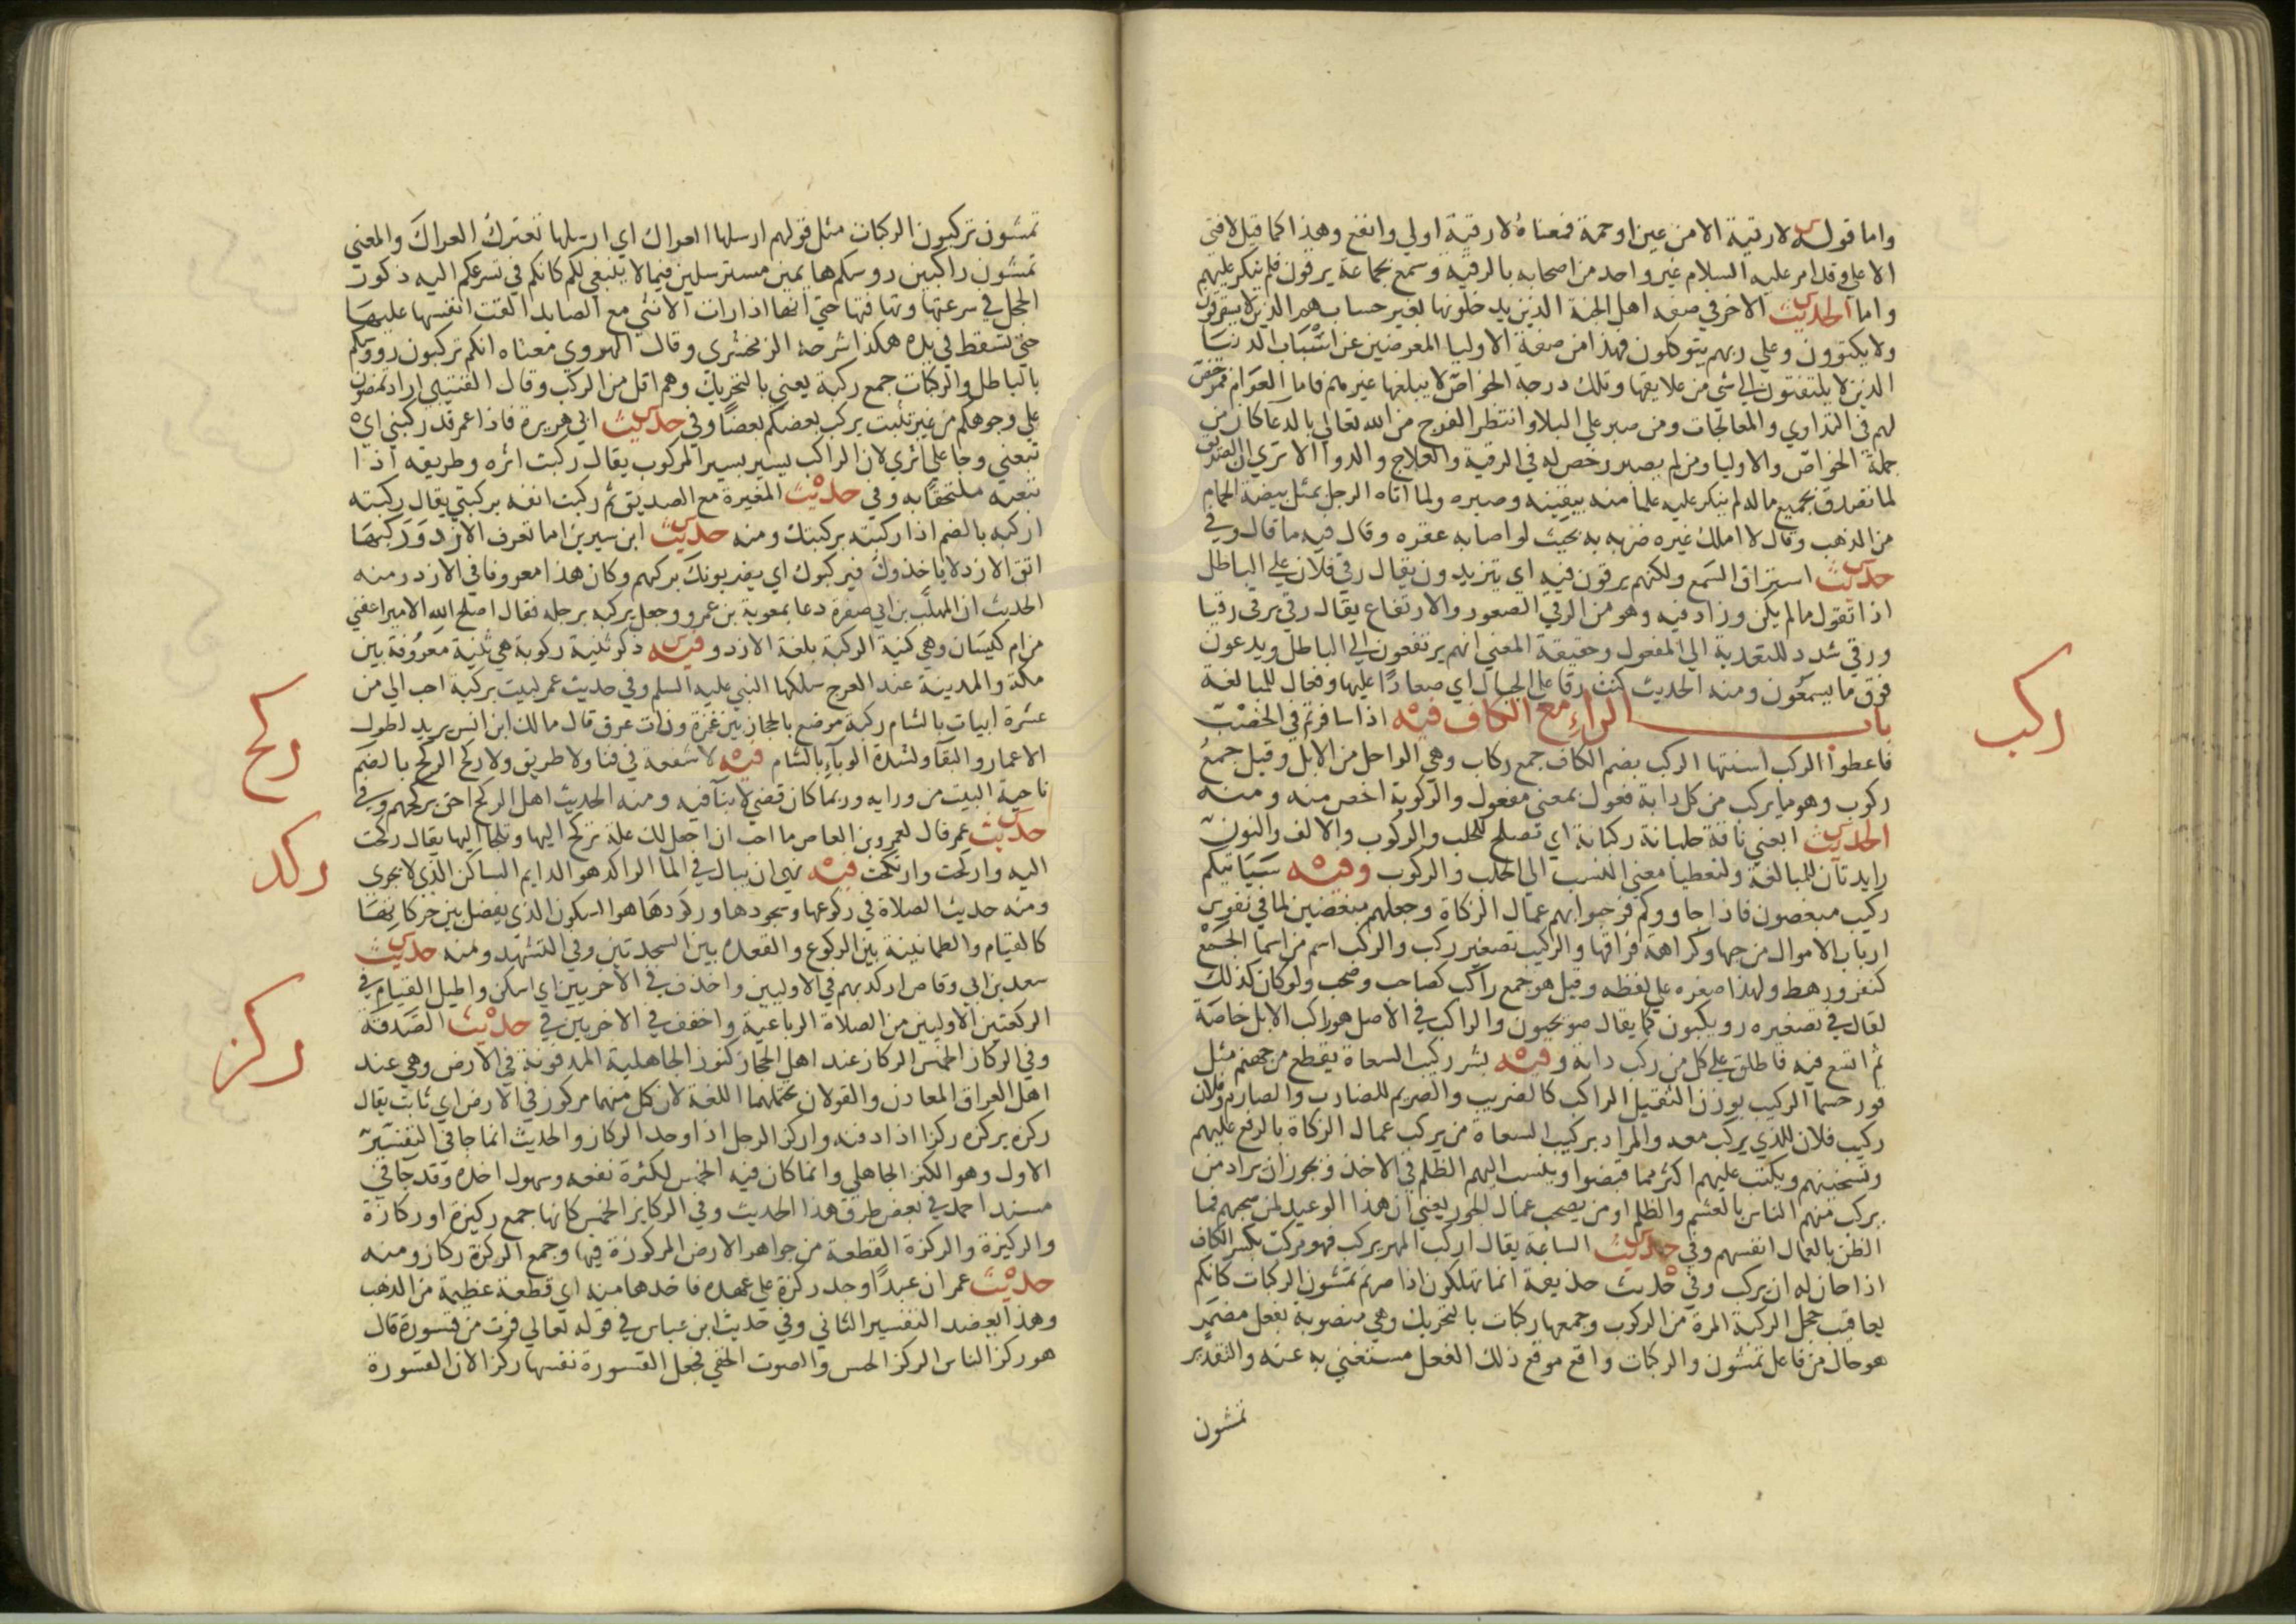 واما قوله لا رقية الا من عين او حمة فمعناه لا رقية اولي وانفع وهذا كما قيل لا فتي
الا علي وقد امر عليه السلام غير واحد من اصحابه بالرقية وسمع بجماعة يرقون فلم ينكر عليهم
واما الحديث الاخر في صفة اهل الجنة الذين يدخلونها بغير حساب هم الذين لا يسترقون
ولا يكتوون وعلي ربهم يتوكلون فهذا من صفة الاوليا المعرضين عن اسباب الدنيا
الذين لا يلتفتون الي شي من علايقها وتلك درجة الخواص لا يبلغها غيرهم فاما العوام فمرخص
لهم في التداوي والمعالجات ومن صبر علي البلا وانتظر الفرج من الله تعالي بالدعا كان من
جملة الخواص والاوليا ومن لم يصبر رخص له في الرقية والعلاج والدوا الا تري ان الصديق
لما تصدق بجميع ماله لم ينكر عليه علما منه بيقينه وصبره ولما اتاه الرجل بمثل بيضة الحمام
من الذهب وقال لا املك غيره ضربه به بحيث لو اصابه عقره وقال فيه ما قال وفي
حديث استراق السمع ولكنهم يرقون فيه اي يتزيدون يقال رقي فلان علي الباطل
اذا تقول ما لم يكن وزاد فيه وهو من الرقي الصعود والارتفاع يقال رقي يرقي رقيا
ورقي شدد للتعدية الي المفعول وحقيقة المعني انهم يرتفعون الي الباطل ويدعون
فوق ما يسمعون ومنه الحديث كنت رقا علي الجبال اي صعادا عليها وفعال للمبالغة
باب الراء مع الكاف فيه اذا سافرتم في الخصب
فاعطوا الركب اسنتها الركب بضم الكاف جمع ركاب وهي الرواحل من الابل وقيل جمع
ركوب وهو ما يركب من كل دابة فعول بمعني مفعول والركوبة اخص منه ومنه
الحديث ابغني ناقة حلبانة ركبانة اي تصلح للحلب والركوب والالف والنون
زايدتان للمبالغة ولتعطيا معني النسب الي الحلب والركوب وفيه سياتيكم
ركيب مبغضون فاذا جاووكم فرحبوا بهم عمال الزكاة وجعلهم مبغضين لما في نفوس
ارباب الاموال من حبها وكراهة فراقها والركيب تصغير ركب والركب اسم من اسما الجمع
كنفر ورهط ولهذا صغره علي لفظه وقيل هو جمع راكب كصاحب وصحب ولو كان كذلك
لقال في تصغيره رويكبون كما يقال صويحبون والراكب في الاصل هو راكب الابل خاصة
ثم اتسع فيه فاطلق علي كل من ركب دابة وفيه بشر ركيب السعاة بقطع من جهنم مثل
قور حسما الركيب بوزن القتيل الراكب كالضريب والصريم للضارب والصارم وفلان
ركيب فلان للذي يركب معه والمراد بركيب السعاة من يركب عمال الزكاة بالرفع عليهم
ويستخينهم ويكتب عليهم اكثر مما قبضوا وينسب اليهم الظلم في الاخذ ويجوز ان يراد من
يركب منهم الناس بالغشم والظلم او من يصحب عمال الجور يعني ان هذا الوعيد لمن صحبهم فما
الظن بالعمال انفسهم وفي حديث الساعة يقال اركب المهر يركب فهو مركب بكسر الكاف
اذا حان له ان يركب وفي حديث حذيفة انما تهلكون اذا صرتم تمشون الركبات كانكم
يعاقيب حجل الركبة المرة من الركوب وجمعها ركبات بالتحريك وهي منصوبة بفعل مضمر
هو حال من فاعل تمشون والركبات واقع موقع ذلك الفعل مستغني به عنه والتقدير
تمشون
ركب
تمشون تركبون الركبات مثل قولهم ارسلها العراك اي ارسلها تعترك العراك والمعني
تمشون راكبين روسكم هايمين مسترسلين فيما لا ينبغي لكم كانكم في تسرعكم اليه ذكور
الحجل في سرعتها وتهافتها حتي انها اذا رات الانثي مع الصايد القت انفسها عليها
حتي تسقط في يده هكذا شرحه الزمخشري وقال الهروي معناه انكم تركبون رووسكم
بالباطل والركبات جمع ركبة يعني بالتحريك وهم اقل من الركب وقال القتيبي اراد تمضون
علي وجوهكم من غير تثبت يركب بعضكم بعضا وفي حديث ابي هريرة فاذا عمر قد ركبني اي
تبعني وجا علي اثري لان الراكب يسير بسير المركوب يقال ركبت اثره وطريقه اذا
تبعته ملتحقا به وفي حديث المغيرة مع الصديق ثم ركبت انفه بركبتي يقال ركبته
اركبه بالضم اذا ركبته بركبتك ومنه حديث ابن سيرين اما تعرف الازد وركبها
اتق الازد لا ياخذوك فيركبوك اي يضربونك بركبهم وكان هذا معروفا في الازد ومنه
الحديث ان المهلب بن ابي صفرة دعا بمعوية بن عمرو وجعل يركبه برجله فقال اصلح الله الامير اعفني
من ام كيسان وهي كنية الركبة بلغة الازد وفيه ذكر ثنية ركوبة هي ثنية معروفة بين
مكة والمدينة عند العرج سلكها النبي عليه السلم وفي حديث عمر لبيت بركبة احب الي من
عشرة ابيات بالشام ركبة موضع بالحجاز بين غمرة وذات عرق قال مالك ابن انس يريد لطول
الاعمار والبقا ولشدة الوباء بالشام فيه لا شفعة في فنا ولا طريق ولا ركح الركح بالضم
ناحية البيت من ورايه وربما كان قضي لا بنآ فيه ومنه الحديث اهل الركح احق بركحهم وفي
حديث عمر قال لعمرو بن العاص ما احب ان اجعل لك علة تركح اليها وتلجا اليها يقال ركحت
اليه واركحت وارتكحت فيه نهي ان يبال في الما الراكد هو الدايم الساكن الذي لا يجري
ومنه حديث الصلاة في ركوعها وسجودها وركودها هو السكون الذي يفصل بين حركاتها
كالقيام والطمانينة بين الركوع والقعدة بين السجدتين وفي التشهد ومنه حديث
سعد بن ابي وقاص اركد بهم في الاوليين واحذف في الاخريين اي اسكن واطيل القيام في
الركعتين الاوليين من الصلاة الرباعية واخفف في الاخريين في حديث الصدقة
وفي الركاز الخمس الركاز عند اهل الحجاز كنوز الجاهلية المدفونة في الارض وهي عند
اهل العراق المعادن والقولان تحتملهما اللغة لان كل منهما مركوز في الارض اي ثابت يقال
ركزه يركزه ركزا اذا دفنه واركز الرجل اذا وجد الركاز والحديث انما جا في التفسير
الاول وهو الكنز الجاهلي وانما كان فيه الخمس لكثرة نفعه وسهول اخذه وقد جا في
مسند احمد في بعض طرق هذا الحديث وفي الركايز الخمس كانها جمع ركيزة او ركازة
والركيزة والركزة القطعة من جواهر الارض المركوزة فيها وجمع الركزة ركاز ومنه
حديث عمر ان عبدا وجد ركزة علي عهده فاخذها منه اي قطعة عظيمة من الذهب
وهذا يعضد التفسير الثاني وفي حديث ابن عباس في قوله تعالي فرت من قسورة قال
هو ركز الناس الركز الحس والصوت الخفي فجعل القسورة نفسها ركزا لان القسورة
ركح
ركد
ركز